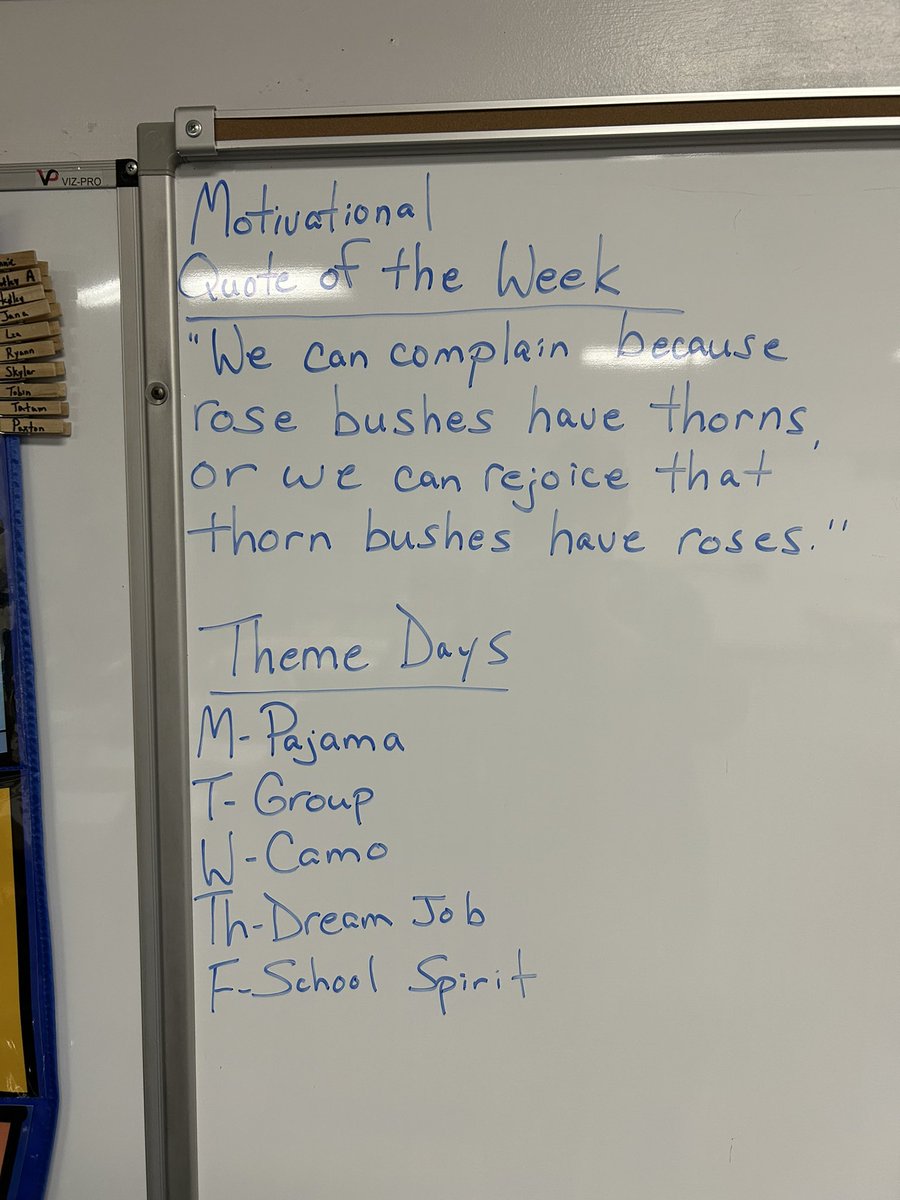 VP VIZ-PRO
A
Jana
Lea
Ryann
Skyler
Tobin
Tatum
Paxton
Motivational
Quote of the Week
"We can complain because
rose bushes have thorns,
or we can rejoice that
thorn bushes have roses."
Theme Days
M-Pajama
T-Group
W-Camo
Th-Dream Job
F-School Spirit